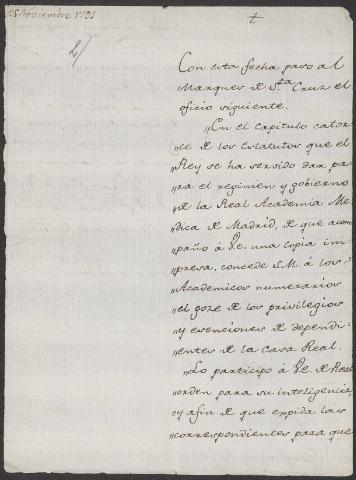 25 Noviembre 1791
+
2/
Con esta fecha paso al
Marques de Sta Cruz el
oficio siguiente.
"En el capitulo cator
"ce de los Estatutos que el
"Rey se ha servido dar pa
"ra el regimen y gobierno
"de la Real Academia Me
"dica de Madrid, de que acom
"paño á V.E. una copia im
"presa, concede S.M. á los
"Academicos numerarios
"el goze de los privilegios
"y exenciones de dependi
"entes de la Casa Real.
"Lo participo á V.E. de Real
"orden para su inteligencia,
"y afin de que expida las
"correspondientes para que